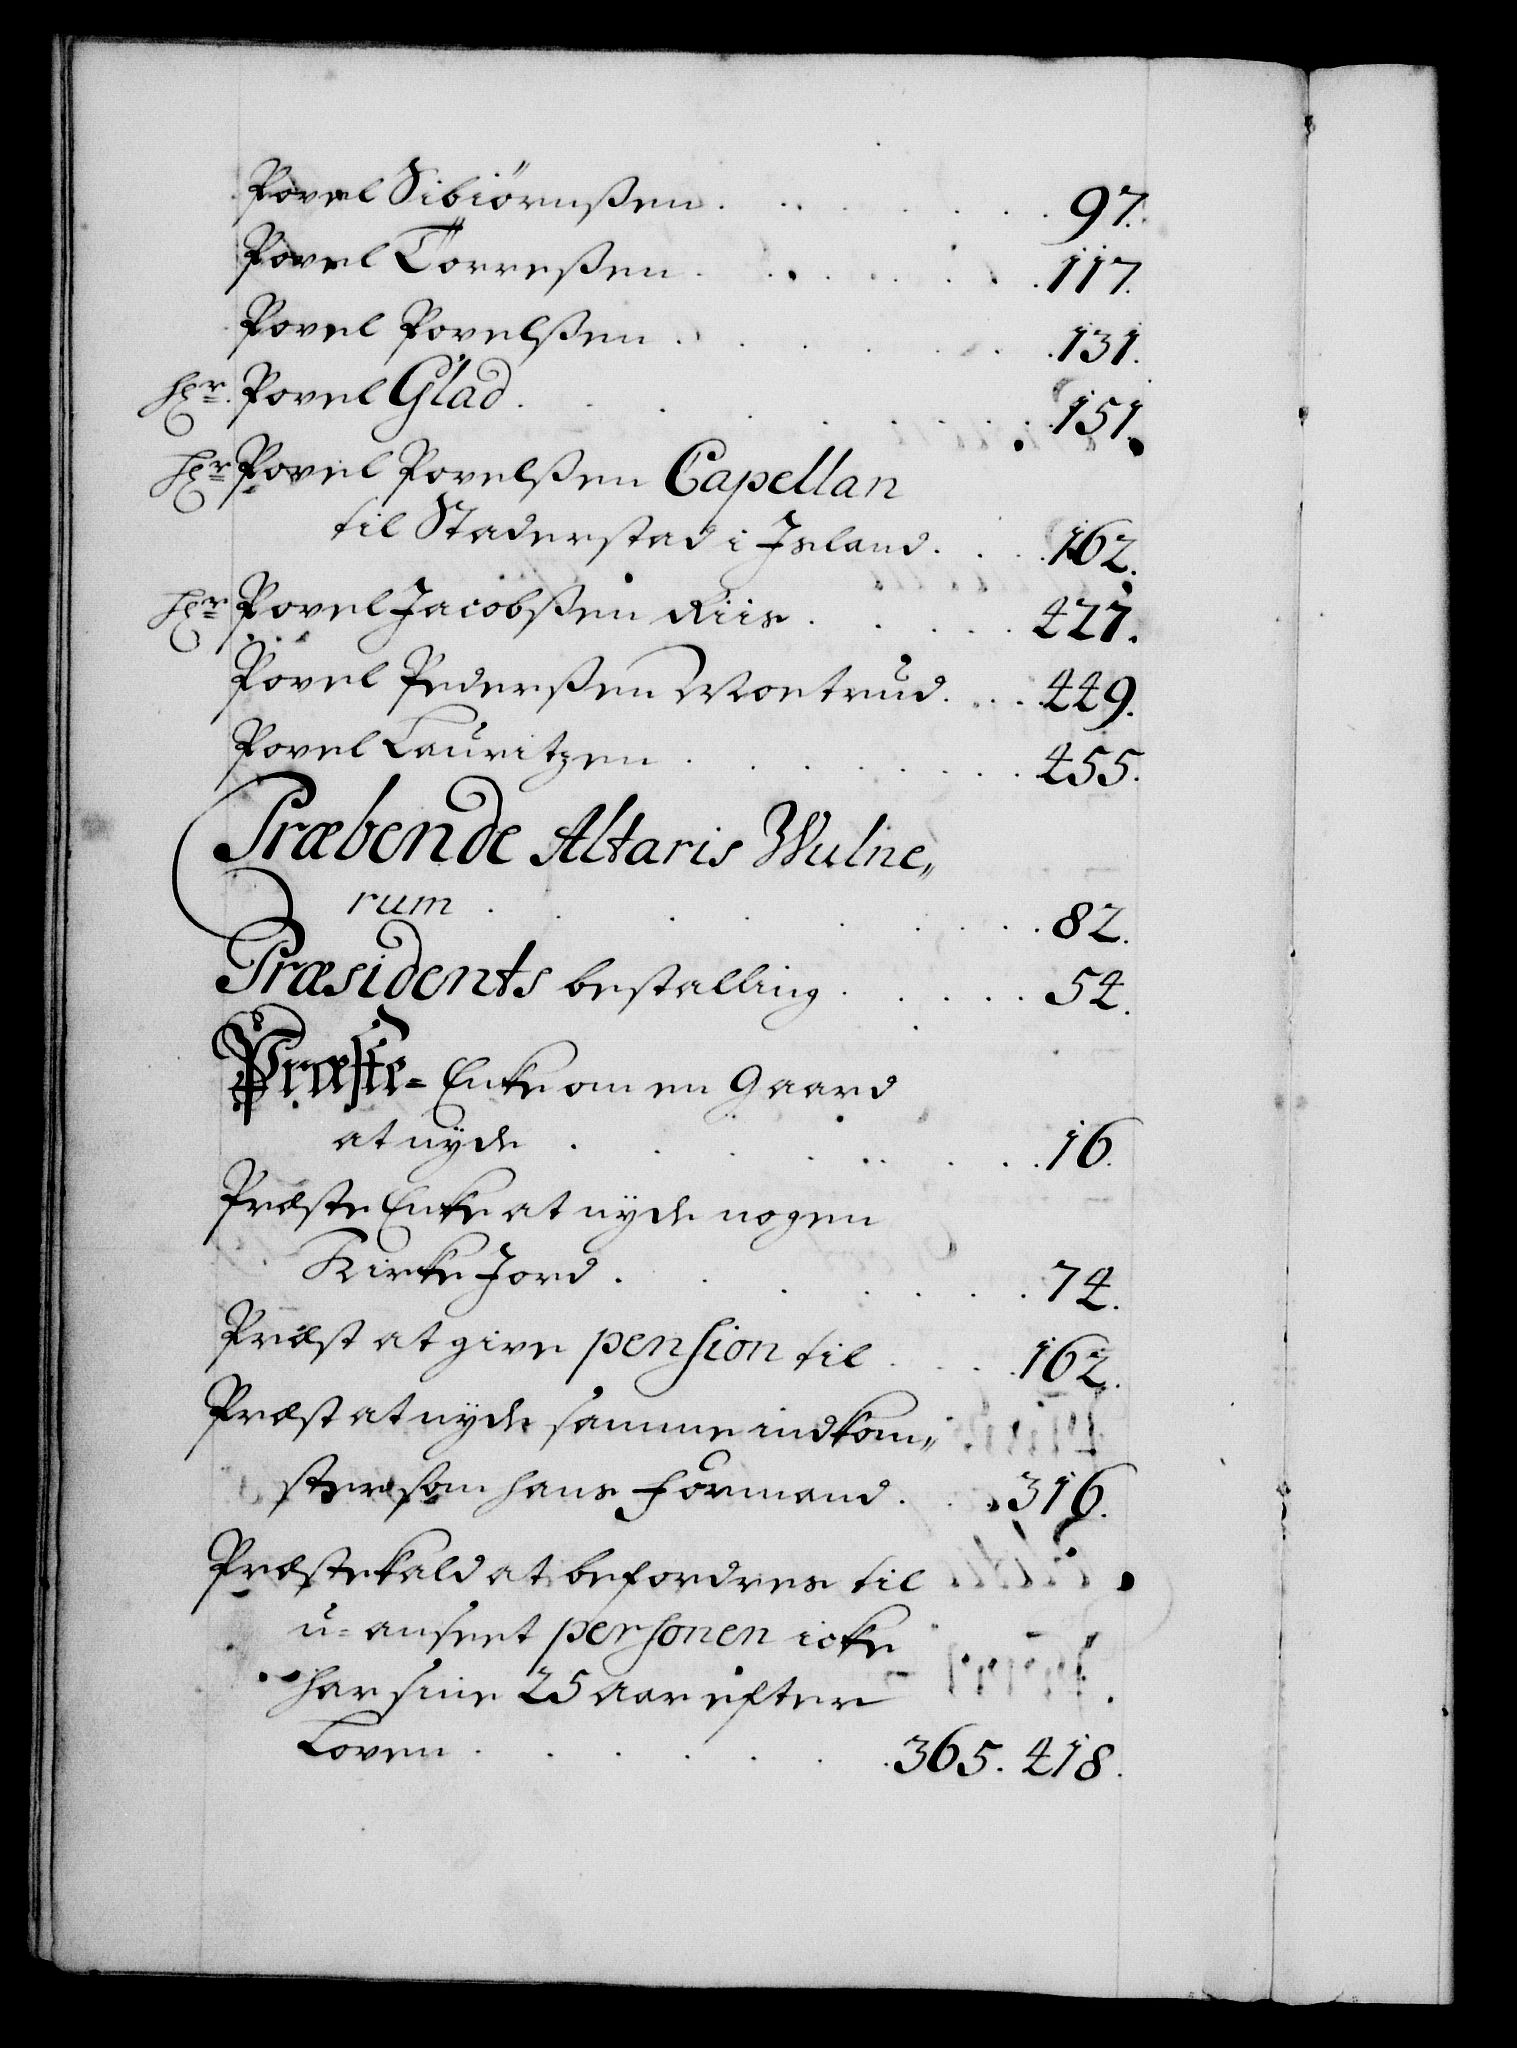 Povel Sibiörnßen . . . . . . . 97.
Povel Torreßen . . . . . . . 117.
Povel Povelßen . . . . . . . 131.
Hr. Povel Glad . . . . . . . 151.
Hr Povel Povelßen Capellan
til Staderstad i Island . . . 162.
Hr Povel Jacobßen Riis . . . . . 427.
Povel Pederßen Woetrud . . . 449.
Povel Lauritzen . . . . . . . 455.
Præbende Altaris Wulne„
rum . . . . . . . . 82.
Præsidents bestalling . . . . . 54.
Præste= Enke om en Gaard
at nyde . . . . . . . . 16.
Præste Enke at nyde nogen
Kirke Jord . . . . . . . 74.
Præst at give pension til . . . 162.
Præst at nyde samme indkom„
ster som hans Formand . . . 316.
Præstekald at befordres til
u=anseet personen icke
har sine 25 Aar efter
Loven . . . . . . . 365. 418.